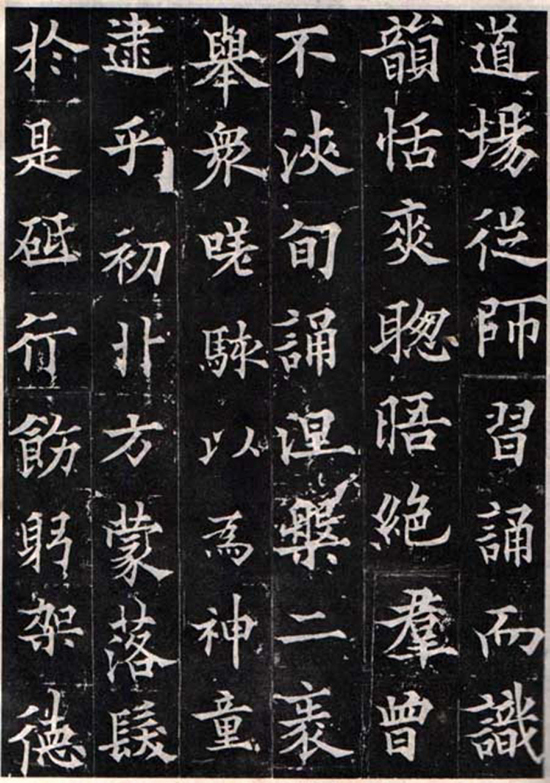 道場從師習誦而識
韻恬爽聦晤絶羣曾
不浹旬誦涅槃二袠
舉衆嗟駭以爲神童
逮乎初丱方蒙落髮
於是砥行飭躬架德